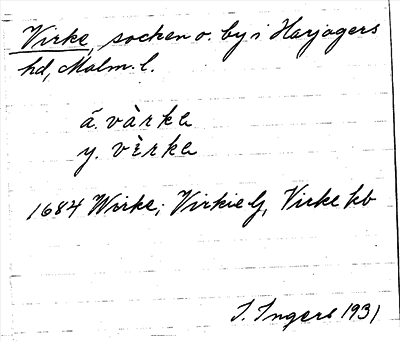 Virke, socken o. by i Harjagers
hd, Malm. l.
ä. và̀rkɛ
y. vèrkɛ
1684 Wirke; Virkie lj, Virke kb
I. Ingers 1931